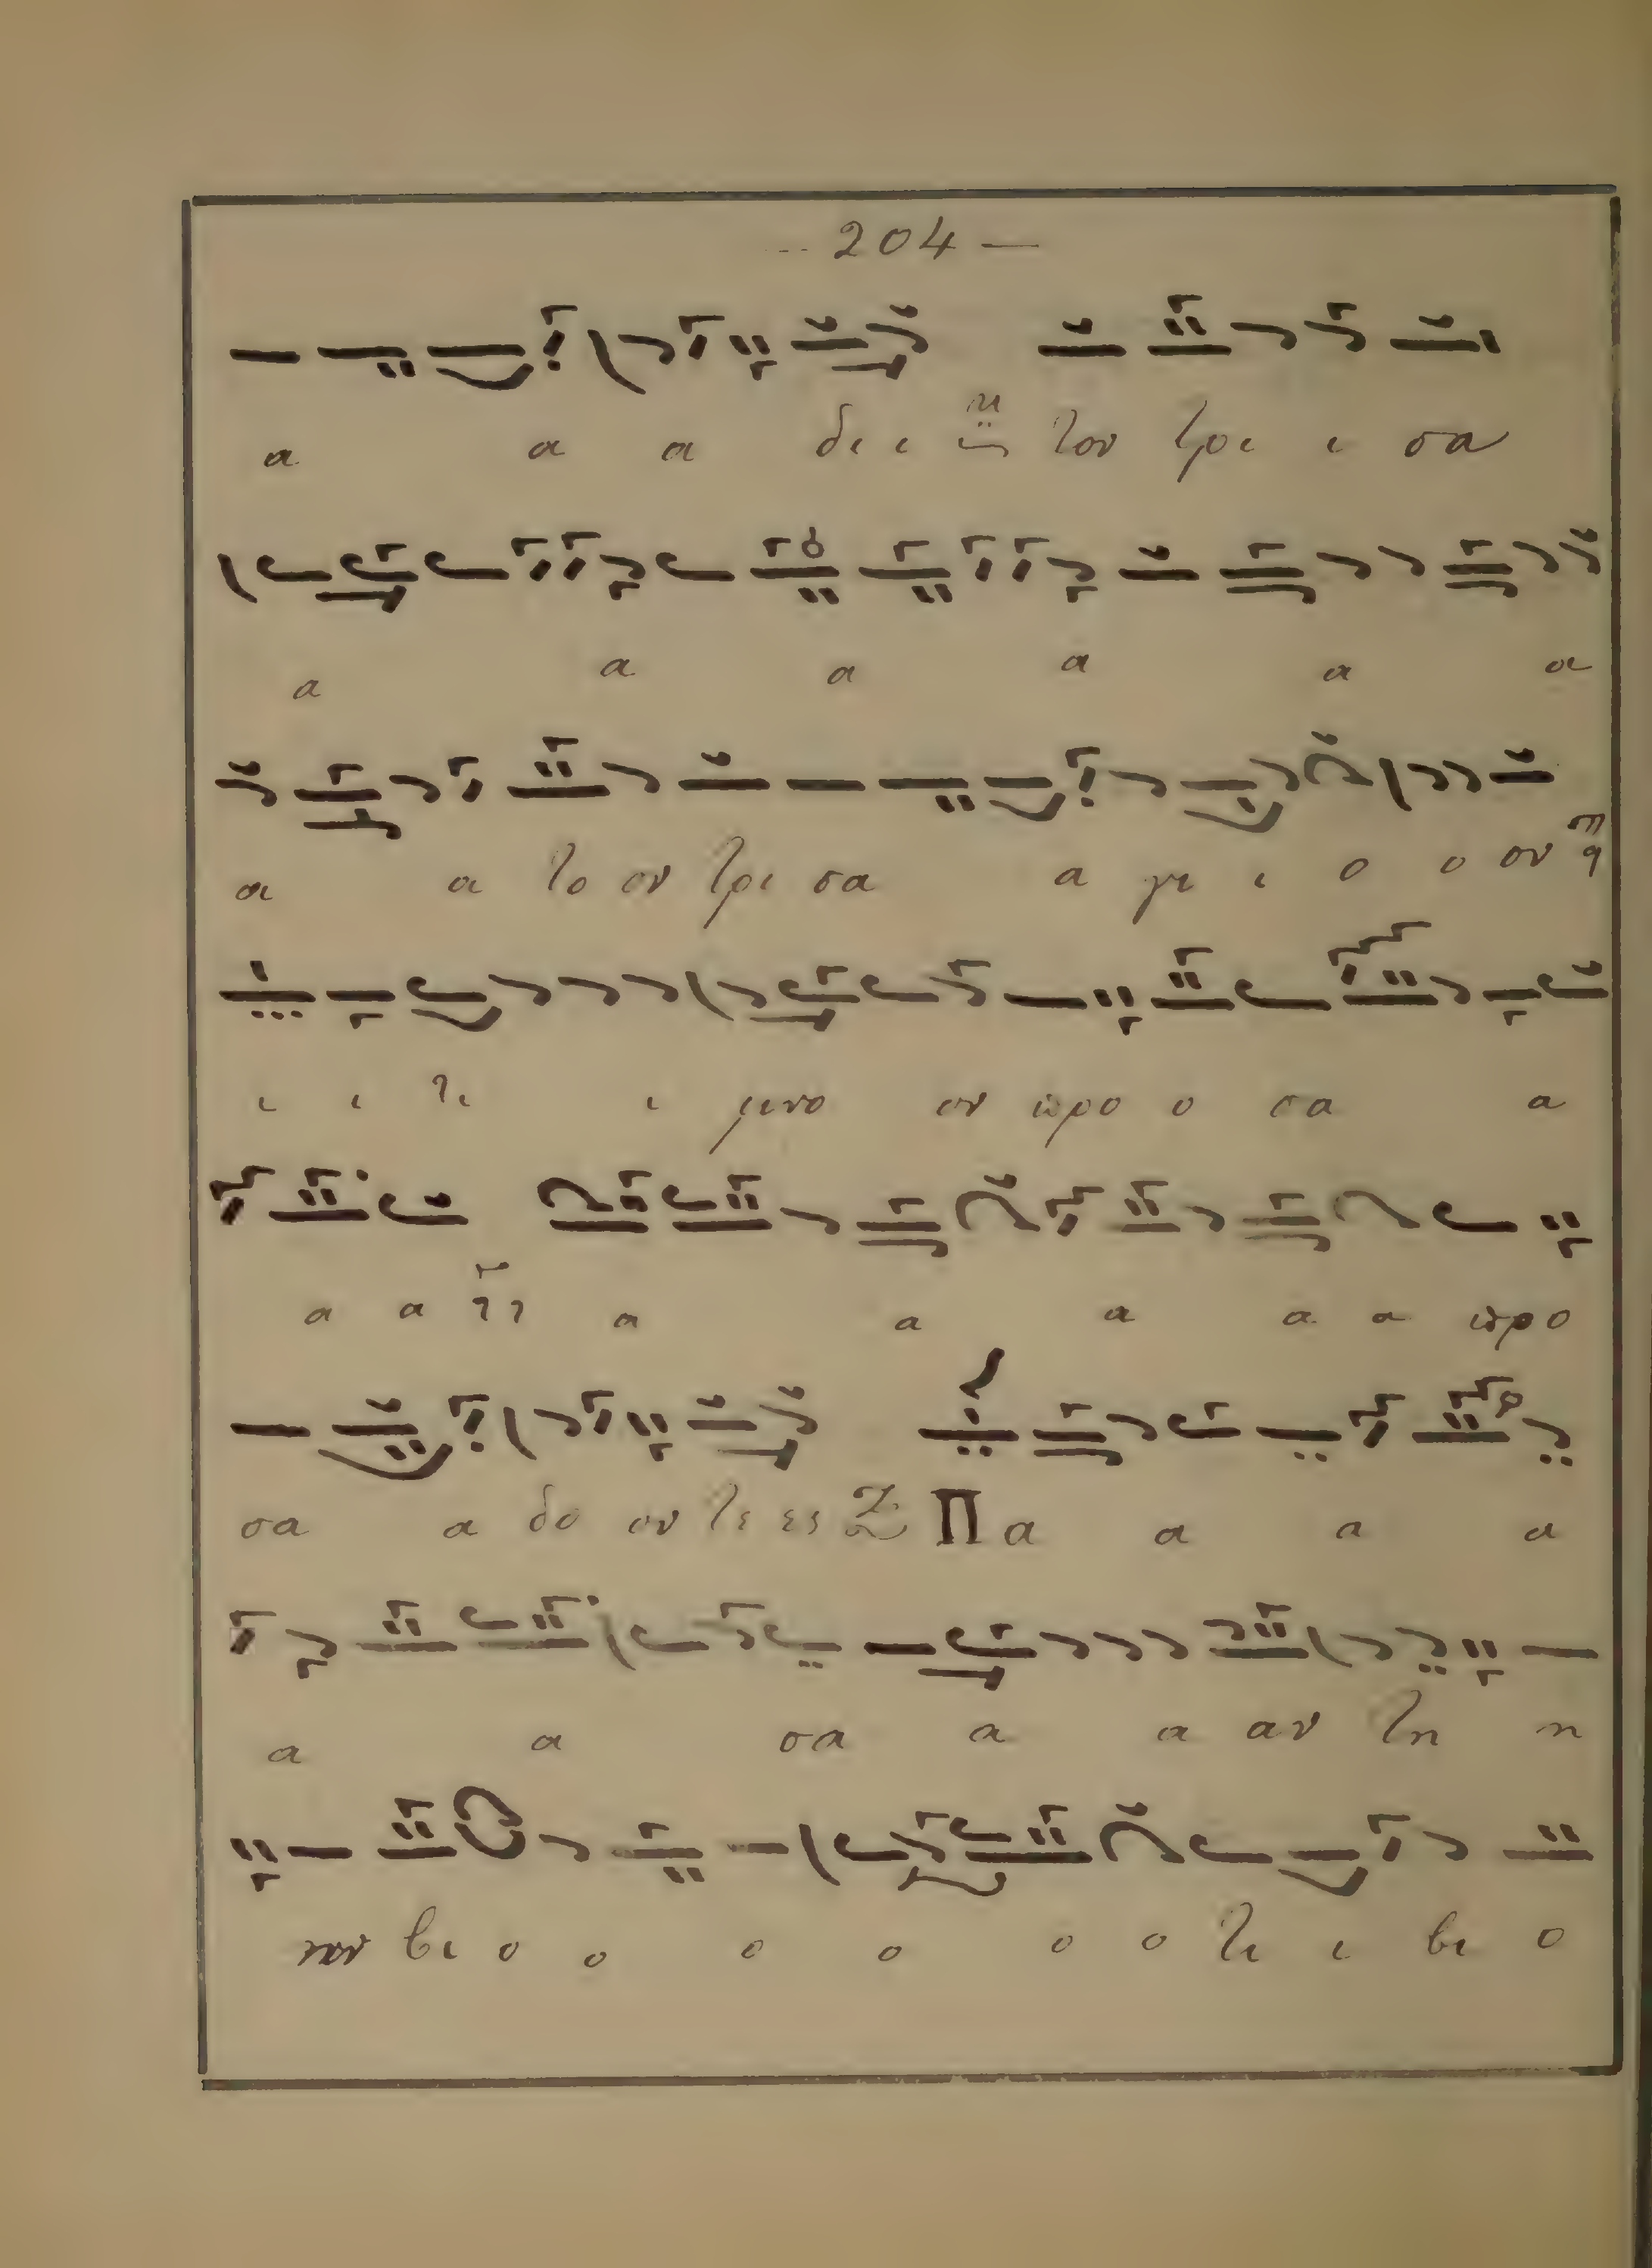 204
α α α δι ι τον τρι ι σα
α α α α α α
α α το ον τρι σα α γι ι ο ο ον
ι ι τι ι μνο ον προ ο σα α
α α α α α α α προ
σα α δο ον τε ες Π α α α α
α α σα α α αν τη η
νον βι ο ο ο ο ο ο τι ι βι ο